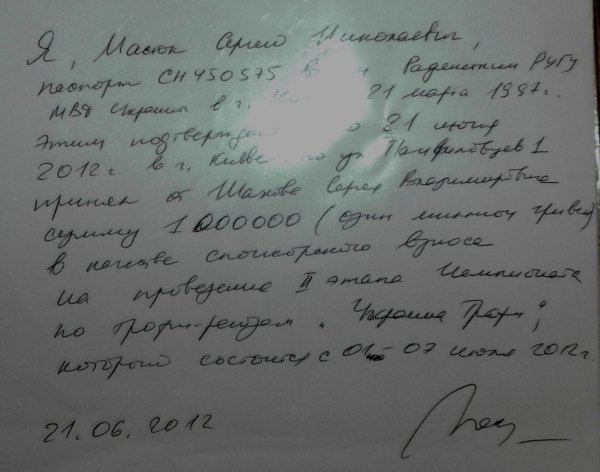 Я, Масюк Сергей Николаевич,
паспорт СН 450575 Раденским РУГУ
МВД Украины в г. 21 марта 1997г.
этим подтверждаю 21 июня
2012г. в г. Киеве по ул Панфиловцев 1
принял от Шахова Сергея Владимировича
сумму 1000000 (один миллион гривен)
в качестве спонсорского взноса
на проведение II этапа Чемпионата
по трофи-рейдам „Украина Трофи",
которого состоится с 01-07 июля 2012г.
21.06.2012